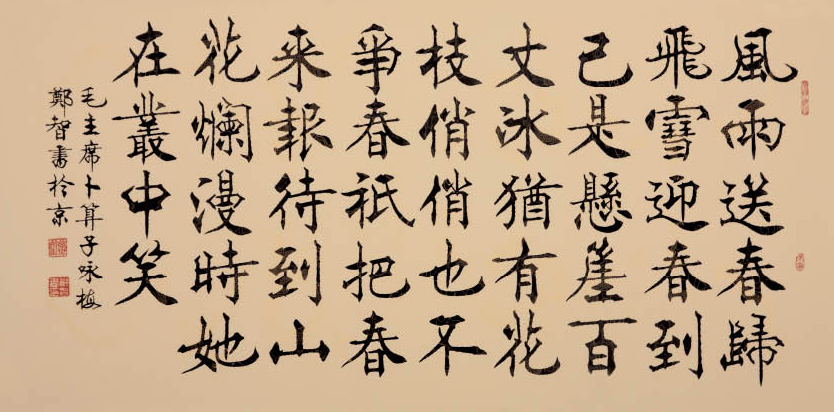 風雨送春歸
飛雪迎春到
已是懸崖百
丈冰猶有花
枝俏俏也不
爭春祇把春
来報待到山
花爛漫時她
在叢中笑
毛主席卜算子咏梅
鄭智書於京